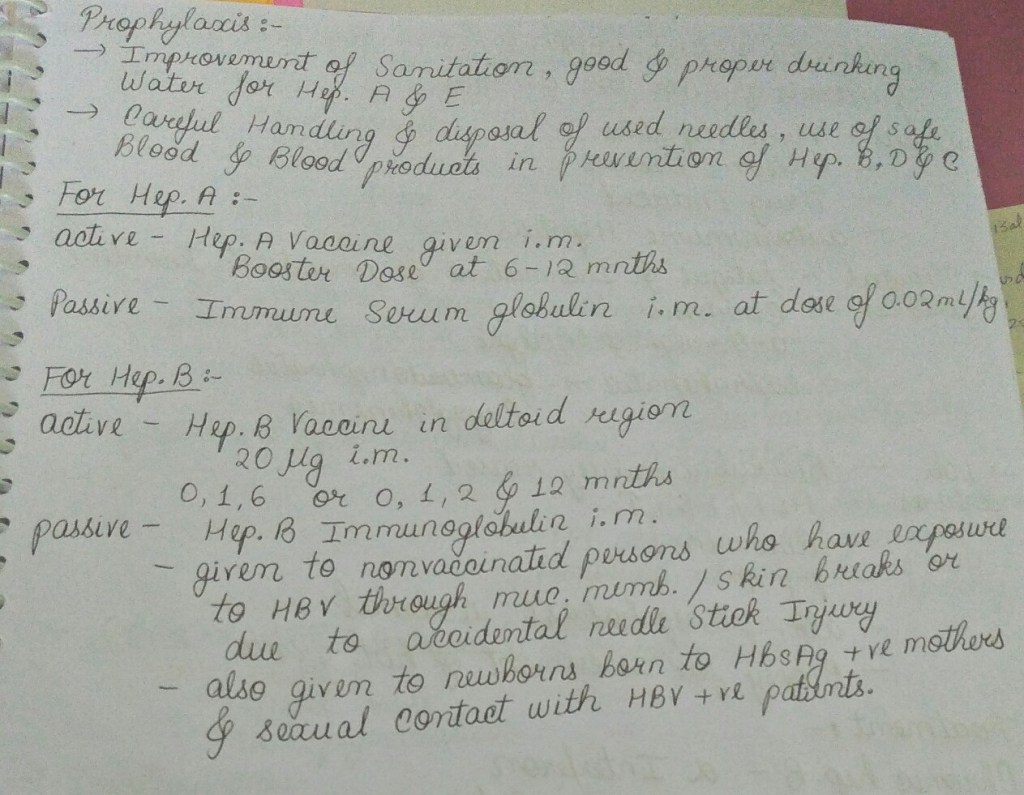 Prophylaxis :-
→ Improvement of Sanitation, good & proper drinking
Water for Hep. A & E
→ Careful Handling & disposal of used needles, use of safe
Blood & Blood products in prevention of Hep. B, D & C
For Hep. A :-
active - Hep. A Vaccine given i.m.
Booster Dose at 6-12 mnths
Passive - Immune Serum globulin i.m. at dose of 0.02 mL/kg.
For Hep. B :-
active - Hep. B Vaccine in deltoid region
20 μg i.m.
0, 1, 6 or 0, 1, 2 & 12 mnths
passive - Hep. B Immunoglobulin i.m.
- given to nonvaccinated persons who have exposure
to HBV through muc. memb. / skin breaks or
due to accidental needle Stick Injury
- also given to newborns born to HbsAg +ve mothers
& sexual contact with HBV +ve patients.